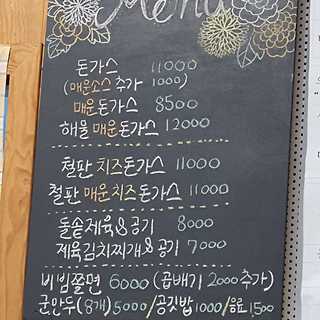 Menu
돈가스 11000
(매운소스 추가 1000)
매운돈가스 8500
해물 매운돈가스 12000
철판 치즈돈가스 11000
철판 매운치즈돈가스 11000
돌솥제육&공기 8000
제육김치찌개&공기 7000
비빔쫄면 6000 (곱배기 2000 추가)
군만두(8개) 5000/공깃밥 1000/음료 1500